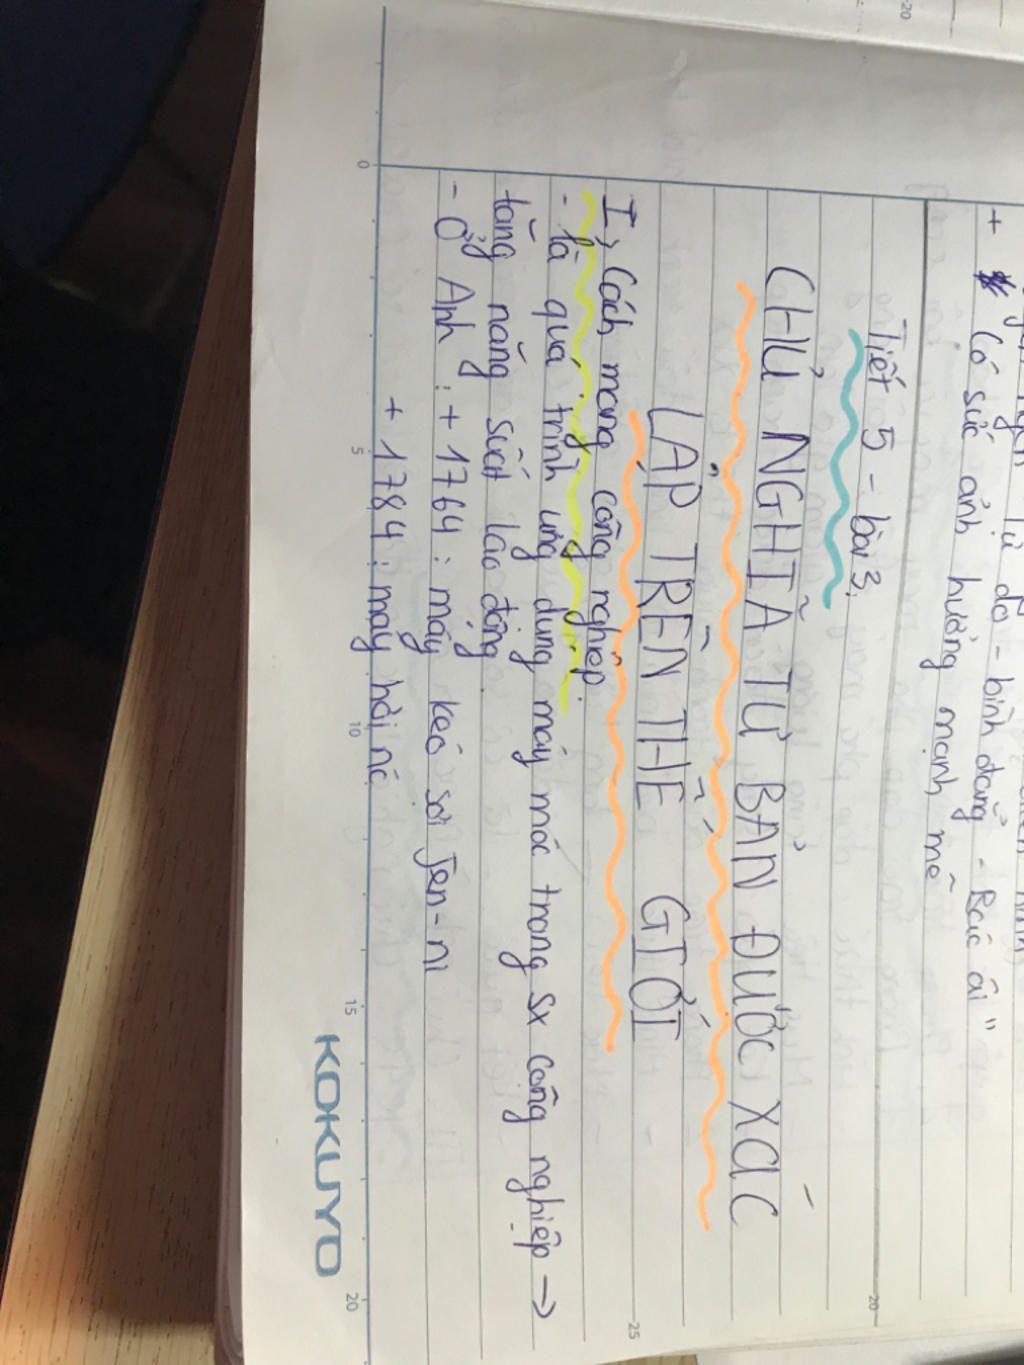 tự do - bình đẳng - Bác ái"
+ Có sức ảnh hưởng mạnh mẽ
Tiết 5 - bài 3.
CHỦ NGHĨA TƯ BẢN ĐƯỢC XÁC
LẬP TRÊN THẾ GIỚI
I, Cách mạng công nghiệp.
- là quá trình ứng dụng máy móc trong sx công nghiệp →
tăng năng suất lao động
- Ở Anh : + 1764 : máy kéo sợi Jen-ni
+ 1784 : máy hơi nc
KOKUYO
0 5 10 15 20
20
25
20